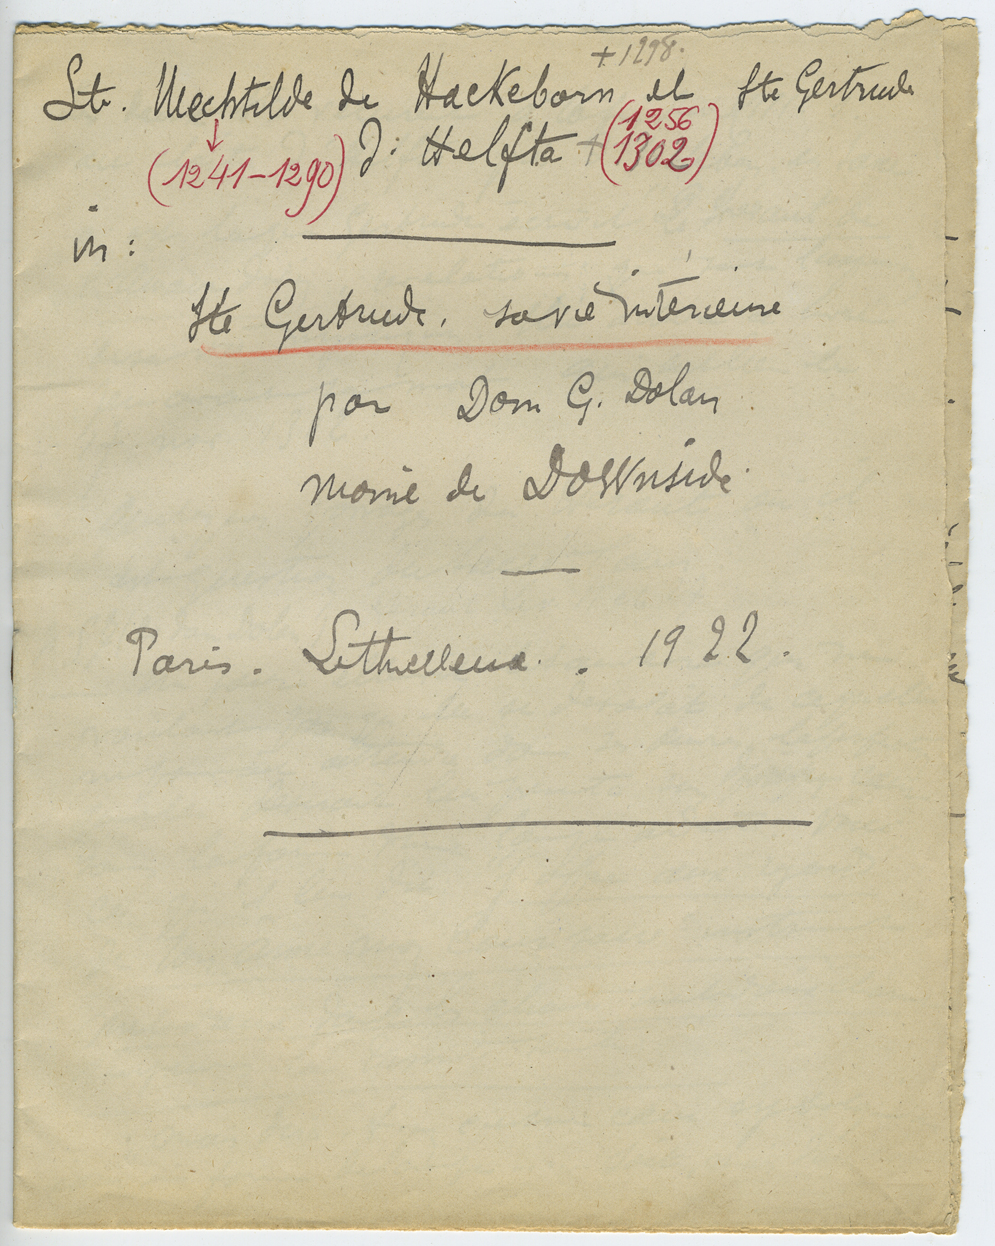 + 1298.
Ste. Mechtilde de Hackeborn et Ste Gertrude
(1241-1290) d: Helfta + (1256
1302)
in:
Ste Gertrude. sa vie intérieure
par Dom G. Dolan
moine de Downside.
Paris. Lethielleux. . 1922.